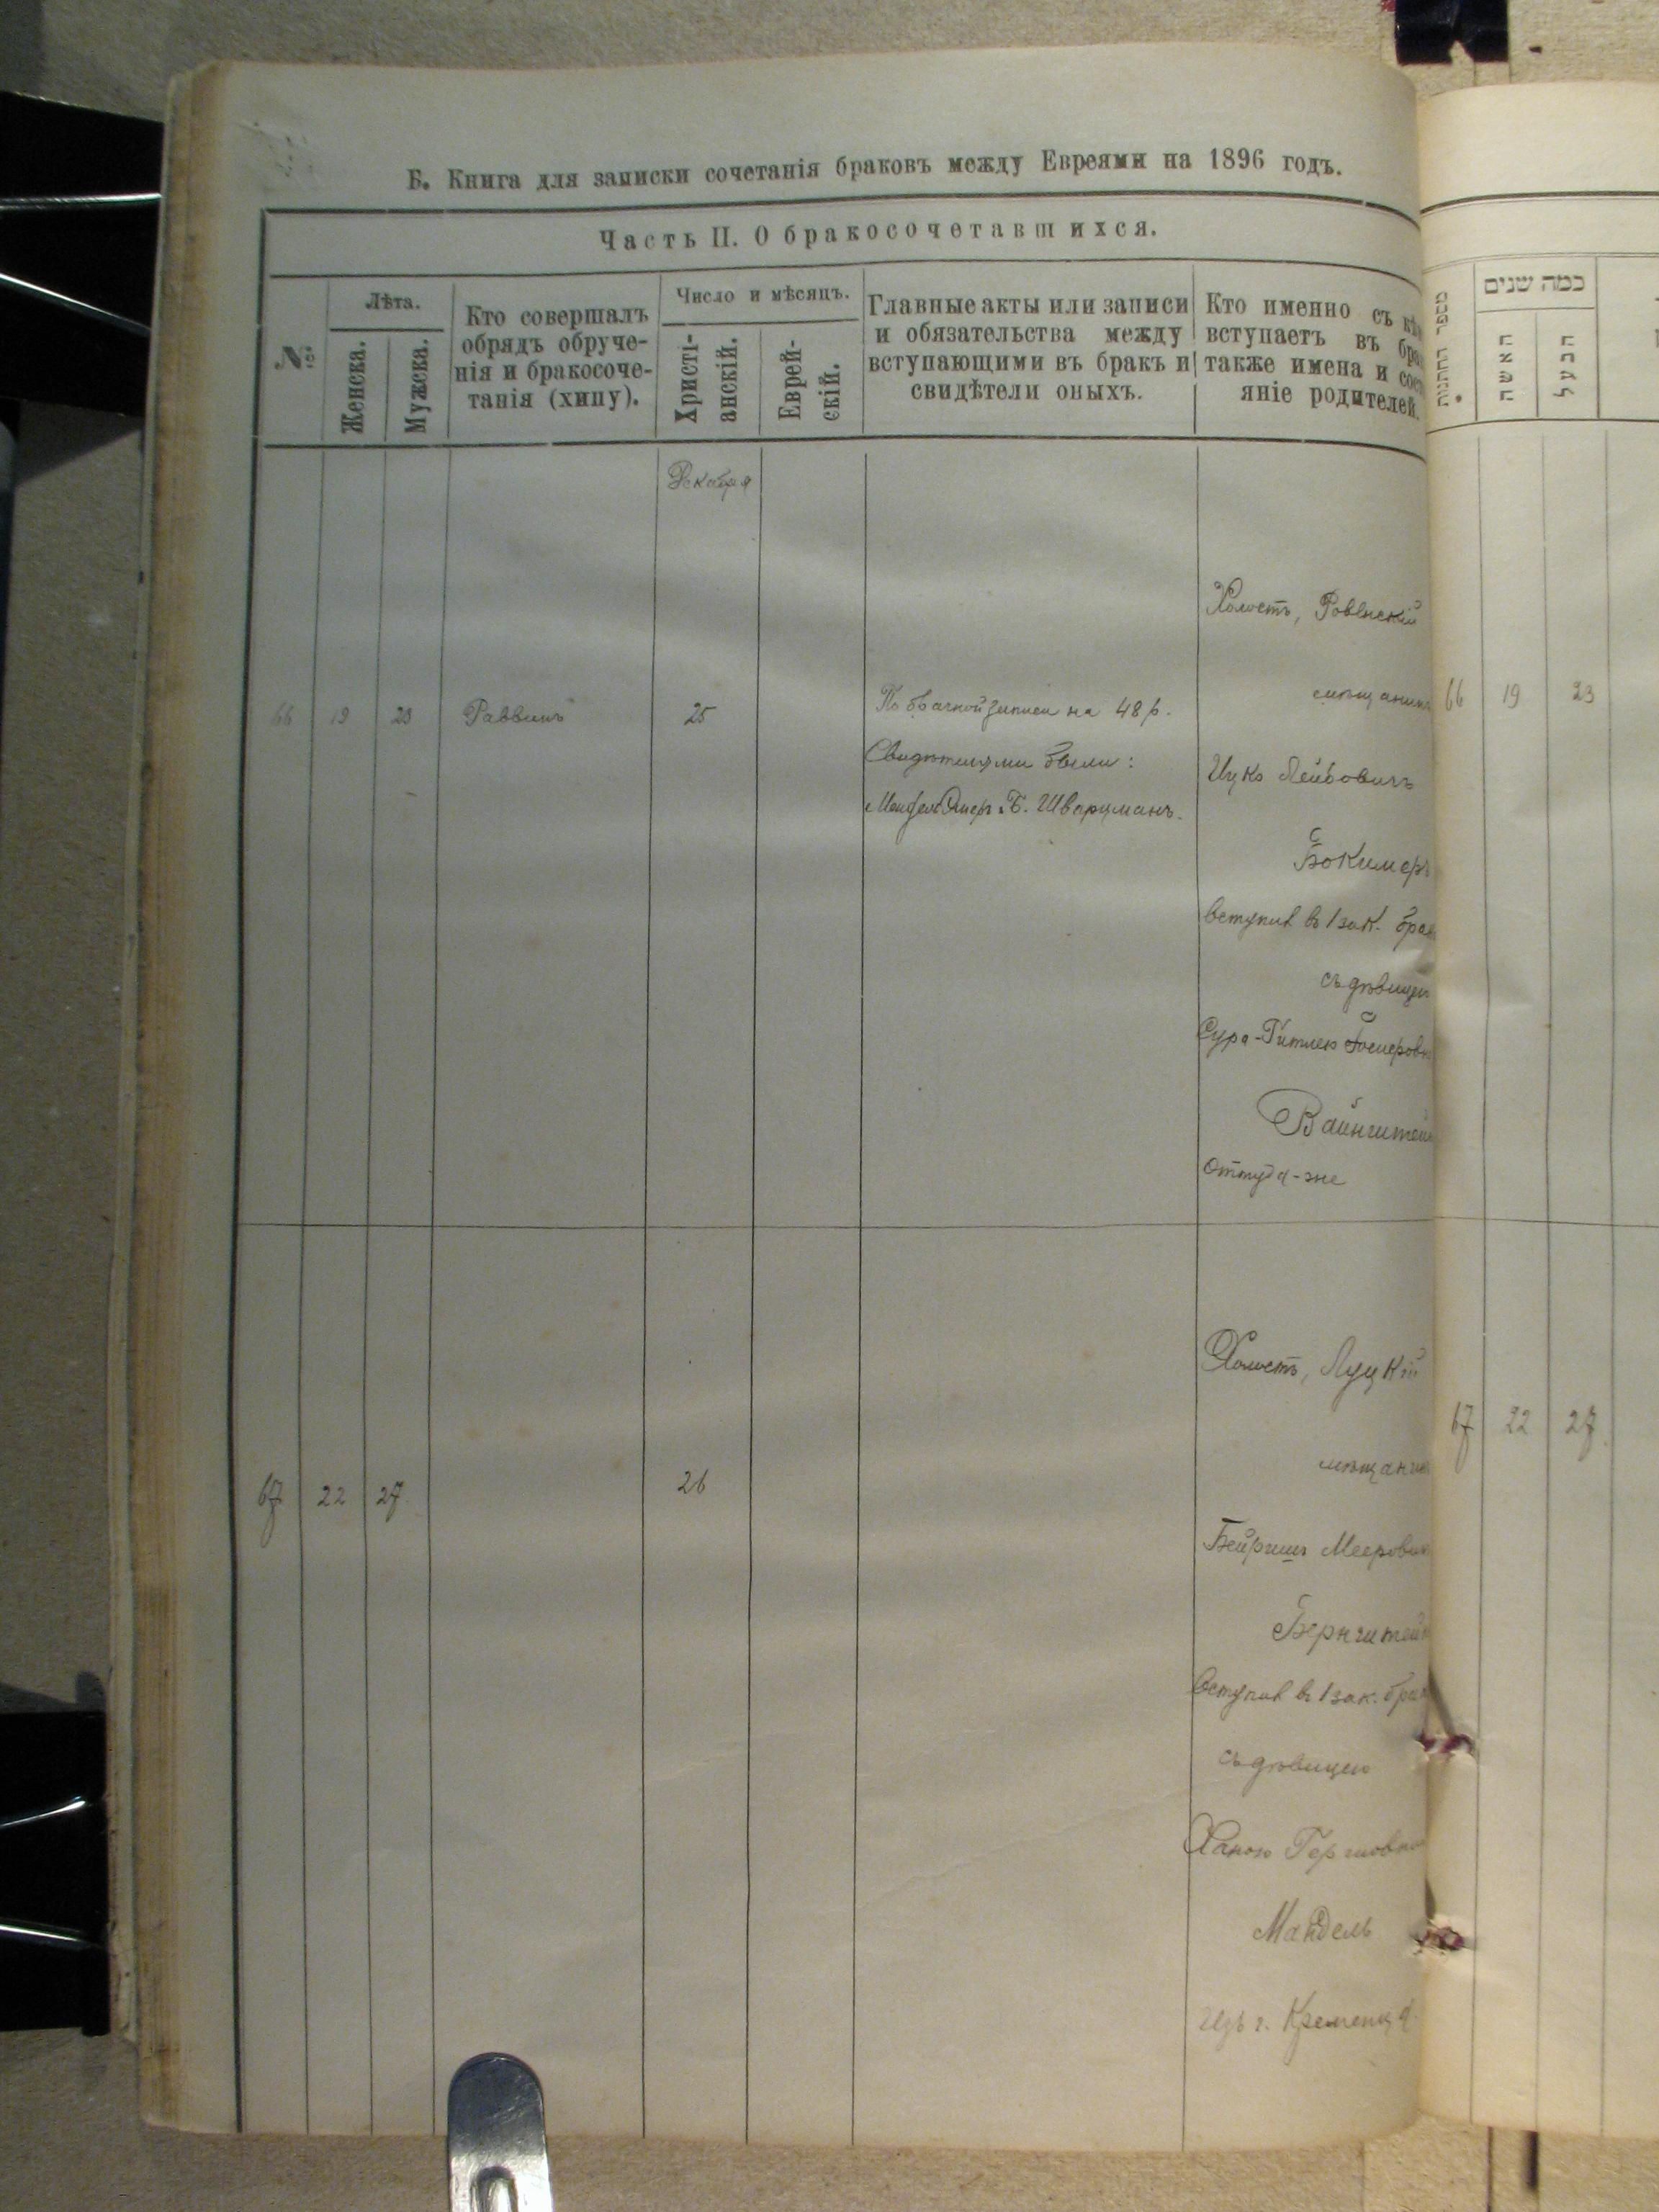 Б. Книга для записки сочетанія браковъ между Евреями на 1896 годъ.
Часть II. О бракосочетавшихся.
№
Лѣта.
Женска.
Мужска.
Кто совершалъ
обрядъ обруче-
нія и бракосоче-
танія (хипу).
Число и мѣсяцъ.
Христі-
анскій.
Еврей-
скій.
Главные акты или записи
и обязательства между
вступающими въ бракъ и
свидѣтели оныхъ.
Кто именно съ
вступаетъ въ
также имена и
яніе родителей.
Декабря
66 19 23 Раввинъ 25
По брачной записи на 48 р.
Свидѣтелями были:
Б. Шварцманъ.
Холостъ, Ровенскій
мѣщанинъ
Ицко Лейбовичъ
Бокимеръ
вступил въ 1 зак. брак
съ дѣвицею
Сура-Гитлею
Вайнштей
оттуда-же
67 22 27 26
Холостъ, Луцкій
мѣщанин
Бейришъ Мееровичъ
Бернштейн
вступил въ 1 зак. брак
съ дѣвицею
Ханою Гершовною
Мандель
изъ г. Кременца
מספר החתונות
כמה שנים
האשה
הבעל
66 19 23
67 22 27